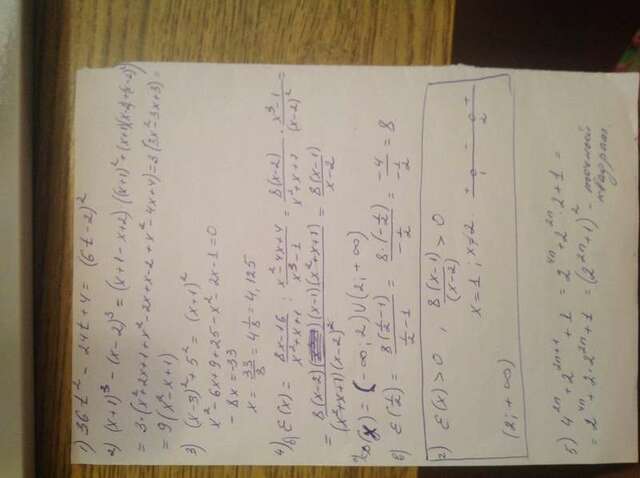 1) 36t² - 24t + 4 = (6t - 2)²
2) (x+1)³ - (x-2)³ = (x+1-x+2)((x+1)²+(x+1)(x-2)+(x-2)²)
= 3·(x²+2x+1+x²-2x+x-2+x²-4x+4) = 3(3x²-3x+3) =
= 9(x²-x+1)
3) (x-3)²+5² = (x+1)²
x²-6x+9+25-x²-2x-1=0
-8x=-33
x = 33/8 = 4 1/8 = 4,125
4) б) ε(x) = (8x-16)/(x²+x+1) : (x²-4x+4)/(x³-1) = 8(x-2)/(x²+x+1) · (x³-1)/(x-2)² =
= 8(x-2)(x-1)(x²+x+1)/((x²+x+1)(x-2)²) = 8(x-1)/(x-2)
D(x) = (-∞; 2)∪(2; +∞)
в) ε(1/2) = 8(1/2-1)/(1/2-1) = 8·(-1/2)/(-1/2) = -4/(-1/2) = 8
г) ε(x)>0, 8(x-1)/(x-2) > 0
x=1; x≠2 + 1 - 2 +
(2; +∞)
5) 4²ⁿ+2²ⁿ⁺¹+1 = 2⁴ⁿ+2²ⁿ·2+1 =
= 2⁴ⁿ+2·2²ⁿ+1 = (2²ⁿ+1)² - точный
квадрат.